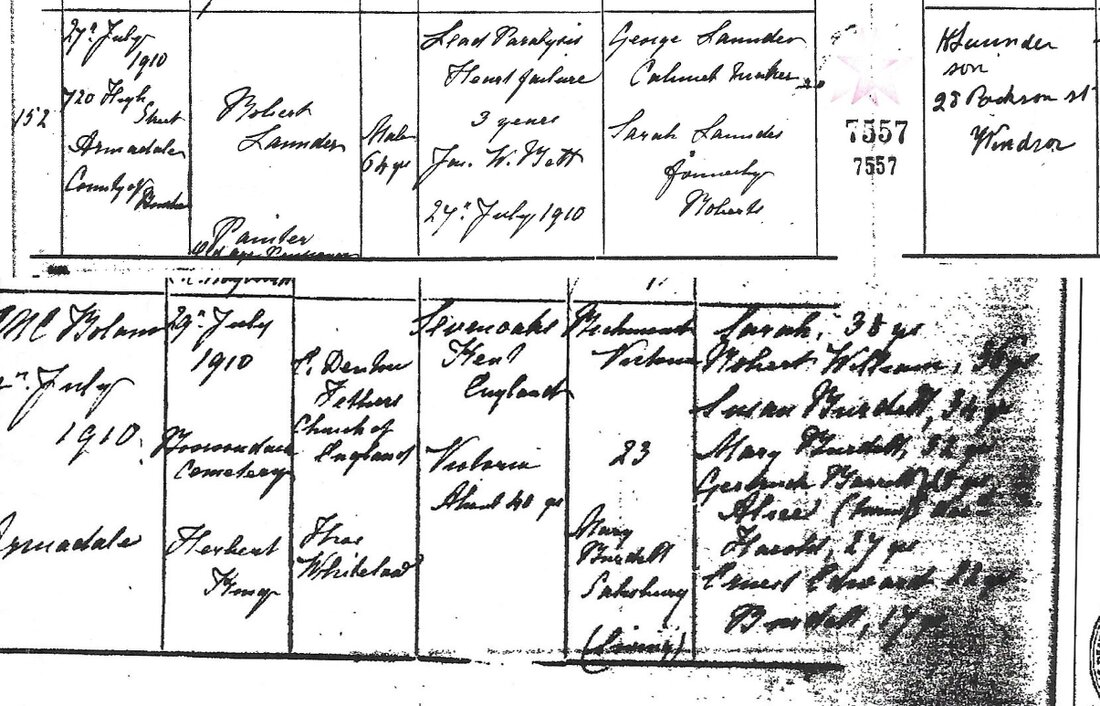 152
27th July
1910
720 High
Street
Armadale
County of Bourke
Robert
Launder
Painter
Old age Pensioner
Male
64 yrs
Lead Paralysis
Heart failure
3 years
Jas. W. Bett
27th July 1910
George Launder
Cabinet Maker
Sarah Launder
formerly
Roberts
7557
7557
H Launder
son
28 st
Windsor
July
1910
Armadale
29th July
1910
Boroondara
Cemetery
Herbert
King
C. Denton
Fethers
Church of
England
Thos
Whitelaw
Sevenoaks
Kent
England
Victoria
About 40 yrs
Richmond
Victoria
23
Mary
Burdett
Salisbury
(Living)
Sarah, 38 yrs
Robert William, 36 yrs
Susan Burdett, 34 yrs
Mary Burdett, 32 yrs
Gertrude 28 yrs
Alice (twins) dead
Harold, 27 yrs
Ernest Edward 22 yrs
Burdett, 17 yrs